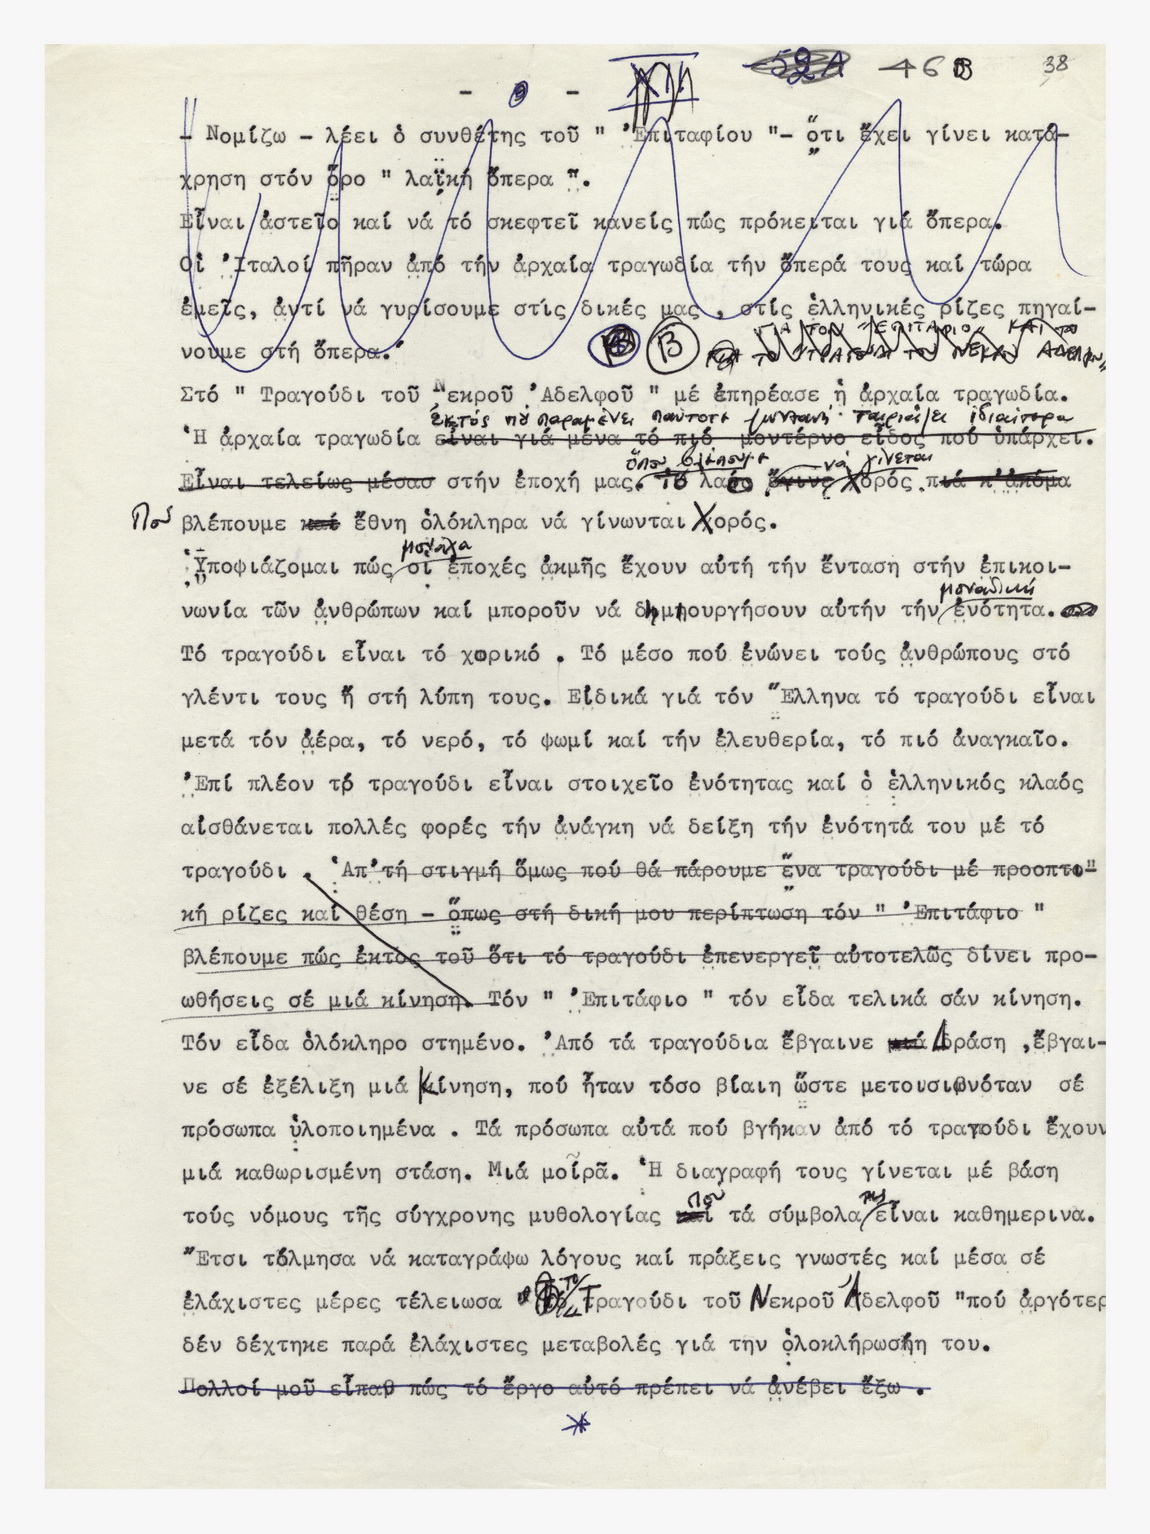 - 9 - XIII 52A 46B 38
- Νομίζω - λέει ὁ συνθέτης τοῦ " Ἐπιταφίου "- ὅτι ἔχει γίνει κατά-
χρηση στόν ὅρο " λαϊκή ὄπερα ".
Εἶναι ἀστεῖο καί νά τό σκεφτεῖ κανείς πώς πρόκειται γιά ὄπερα.
Οἱ Ἰταλοί πῆραν ἀπό τήν ἀρχαία τραγωδία τήν ὄπερά τους καί τώρα
ἐμεῖς, ἀντί νά γυρίσουμε στίς δικές μας , στίς ἑλληνικές ρίζες πηγαί-
νουμε στή ὄπερα."
Β ΓΙΑ ΤΟΝ "ΕΠΙΤΑΦΙΟ" ΚΑΙ ΤΟ
ΤΡΑΓΟΥΔΙ ΤΟΥ ΝΕΚΡΟΥ ΑΔΕΛΦΟΥ"
Στό " Τραγούδι τοῦ Νεκροῦ Ἀδελφοῦ " μέ ἐπηρέασε ἡ ἀρχαία τραγωδία.
ἐκτός πού παραμένει πάντοτε ταιριάζει ἰδιαίτερα
Ἡ ἀρχαία τραγωδία εἶναι γιά μένα τό πιό μοντέρνο εἶδος πού ὑπάρχει.
ὅπου βλέπουμε νά γίνεται
Εἶναι τελείως μέσασ στήν ἐποχή μας. Τό λαό ἔγινε Χορός πιά κ'ἀκόμα
Πού βλέπουμε καί ἔθνη ὁλόκληρα νά γίνωνται Χορός.
μονάχα
Ὑποψιάζομαι πώς οἱ ἐποχές ἀκμῆς ἔχουν αὐτή τήν ἔνταση στήν ἐπικοι-
μοναδική
νωνία τῶν ἀνθρώπων καί μποροῦν νά δημιουργήσουν αὐτήν τήν ἑνότητα.
Τό τραγούδι εἶναι τό χωρικό . Τό μέσο πού ἑνώνει τούς ἀνθρώπους στό
γλέντι τους ἤ στή λύπη τους. Εἰδικά γιά τόν Ἕλληνα τό τραγούδι εἶναι
μετά τόν ἀέρα, τό νερό, τό ψωμί καί τήν ἐλευθερία, τό πιό ἀναγκαῖο.
Ἐπί πλέον τό τραγούδι εἶναι στοιχεῖο ἑνότητας καί ὁ ἑλληνικός κλαός
αἰσθάνεται πολλές φορές τήν ἀνάγκη νά δείξη τήν ἑνότητά του μέ τό
τραγούδι . Ἀπ'τή στιγμή ὅμως πού θά πάρουμε ἕνα τραγούδι μέ προοπτι-
κή ρίζες καί θέση - ὅπως στή δική μου περίπτωση τόν " Ἐπιτάφιο "
βλέπουμε πώς ἐκτός τοῦ ὅτι τό τραγούδι ἐπενεργεῖ αὐτοτελῶς δίνει προ-
ωθήσεις σέ μιά κίνηση. Τόν " Ἐπιτάφιο " τόν εἶδα τελικά σάν κίνηση.
Τόν εἶδα ὁλόκληρο στημένο. Ἀπό τά τραγούδια ἔβγαινε μιά Δράση ,ἔβγαι-
νε σέ ἐξέλιξη μιά Κίνηση, πού ἦταν τόσο βίαιη ὥστε μετουσιωνόταν σέ
πρόσωπα ὑλοποιημένα . Τά πρόσωπα αὐτά πού βγήκαν ἀπό τό τραγούδι ἔχουν
μιά καθωρισμένη στάση. Μιά μοῖρα. Ἡ διαγραφή τους γίνεται μέ βάση
πού της
τούς νόμους τῆς σύγχρονης μυθολογίας καί τά σύμβολα εἶναι καθημερινα.
Ἔτσι τόλμησα νά καταγράψω λόγους καί πράξεις γνωστές καί μέσα σέ
ἐλάχιστες μέρες τέλειωσα "Τό Τραγούδι τοῦ Νεκροῦ Ἀδελφοῦ "πού ἀργότερ
δέν δέχτηκε παρά ἐλάχιστες μεταβολές γιά την ὁλοκλήρωσή του.
Πολλοί μοῦ εἶπαν πώς τό ἔργο αὐτό πρέπει νά ἀνέβει ἔξω .
*